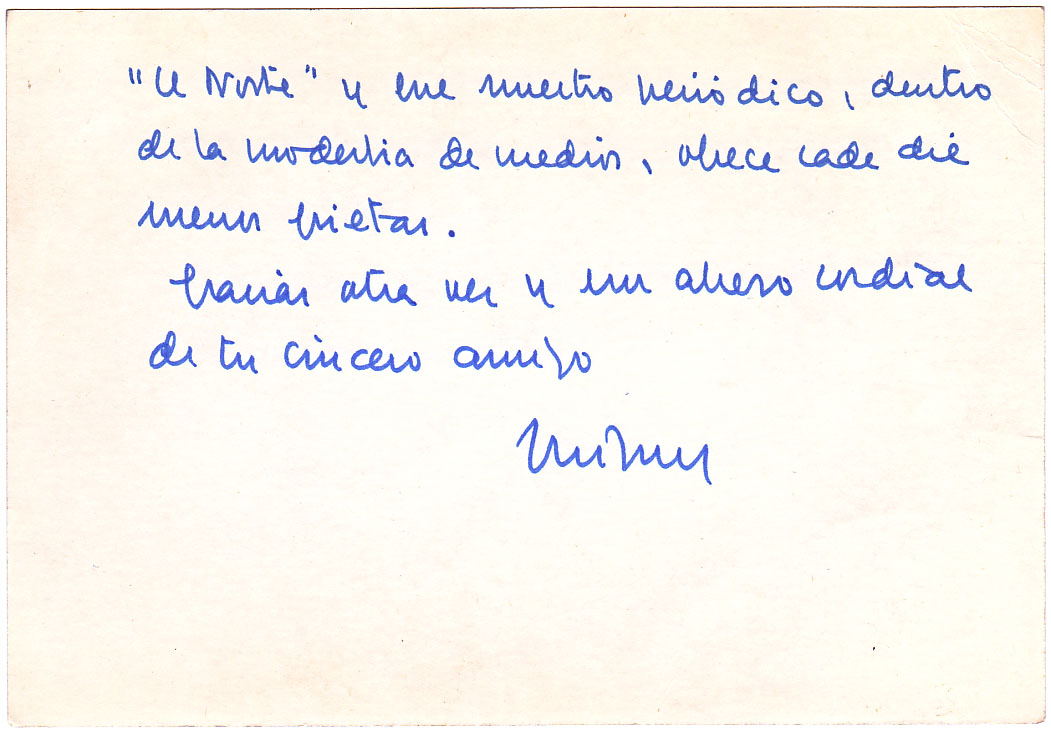 "El Norte" y que nuestro periódico, dentro
de la modestia de medios, ofrece cada día
menos grietas.
Gracias otra vez y un abrazo cordial
de tu sincero amigo